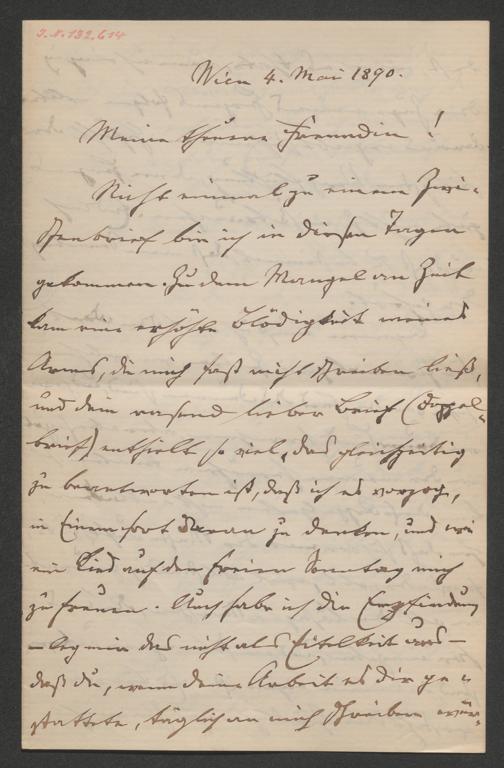 J.N.132.614
Wien 4. Mai 1890.
Meine theure Freundin!
Nicht einmal zu einem Zwi-
schenbrief bin ich in diesen Tagen
gekommen. Zu dem Mangel an Zeit
kam eine erhöhte Blödigkeit meines
Arms, die mich fast nicht schreiben ließ,
und dein rasend lieber Brief (Doppel-
brief) enthielt so viel, das gleichzeitig
zu beantworten ist, daß ich es vorzog,
in Einem fort daran zu denken, und wie
ein Kind auf den freien Sonntag mich
zu freuen. Auch habe ich die Empfindung
– leg mir das nicht als Eitelkeit aus –
daß du, wenn deine Arbeit es dir ge-
stattete, täglich an mich schreiben